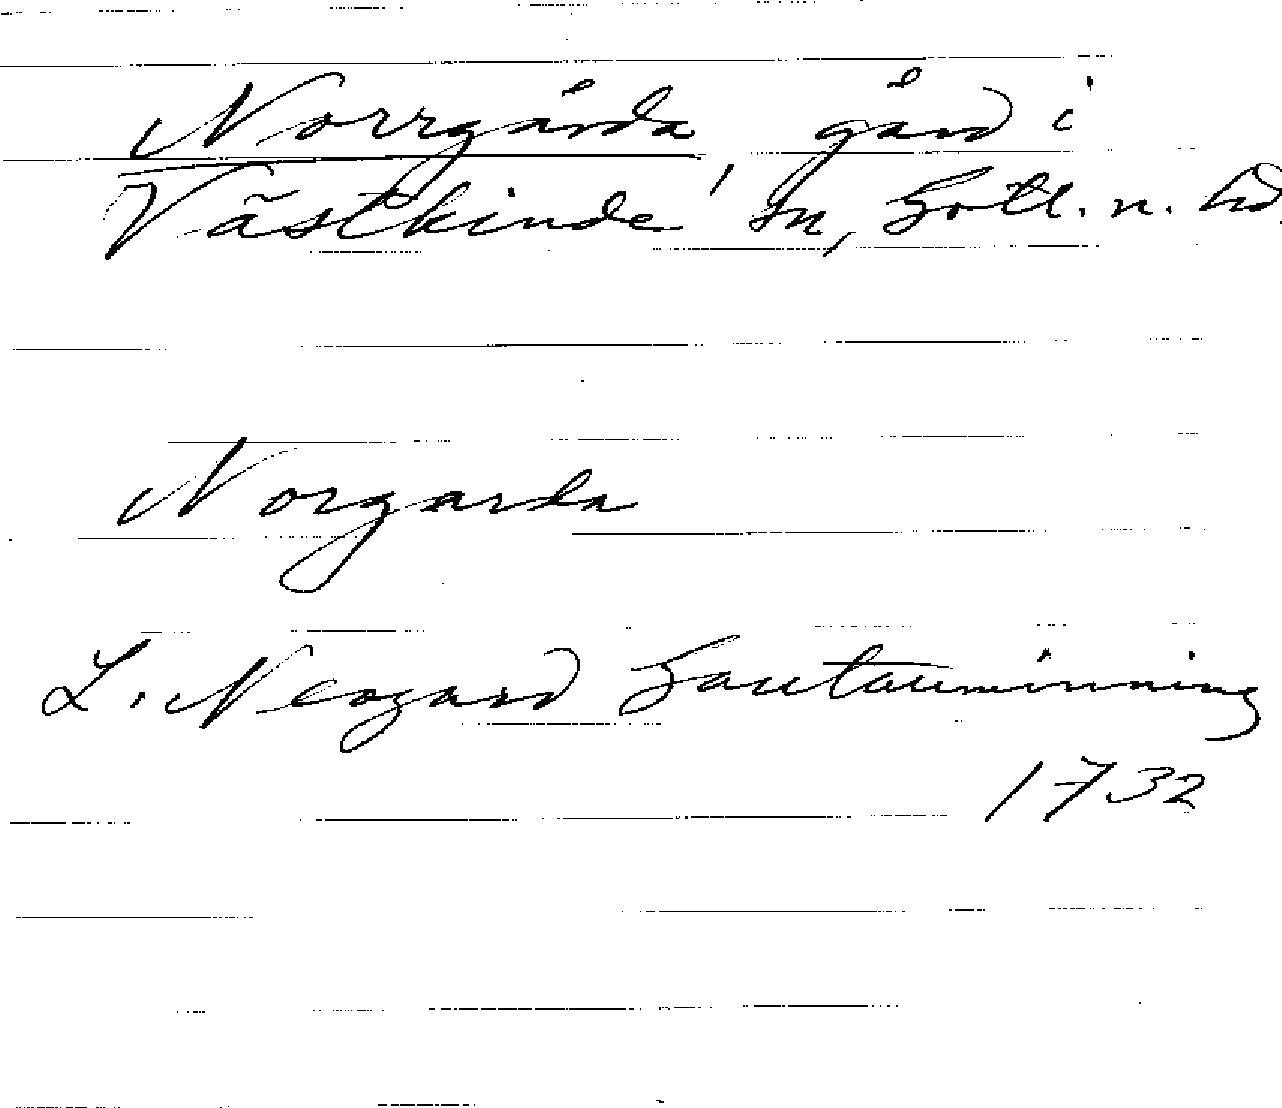 Norrgårda, gård i
Västkinde sn, Gotl. n. hd.
Norgarda
L. Neogard Gautauminning
1732